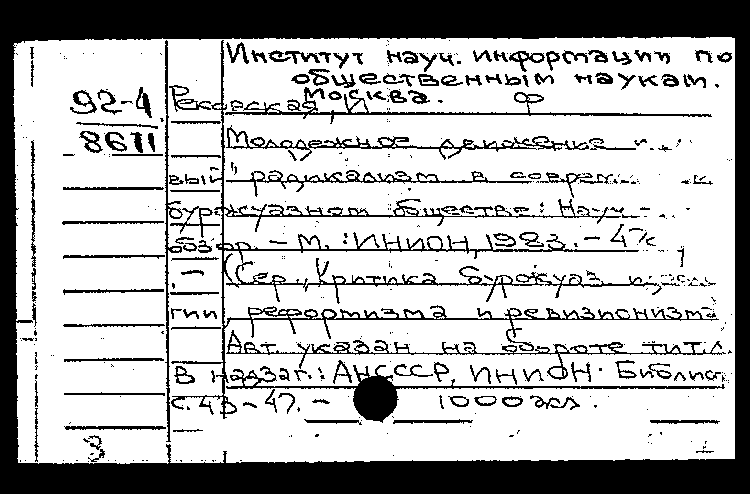 Институт науч. информации по
общественным наукам.
Москва. Ф
92-4
8611
Рековская, И
Молодежное движение и
вый "радикализм в соврем
буржуазном обществе: Науч.-
обзор. - М.: ИНИОН, 1983. - 47с
. - (Сер. "Критика буржуаз. идеоло
гии, реформизма и ревизионизма
Авт. указан на обороте тит.л.
В надзаг.: АНСССР, ИНИОН. Библиог
с. 43-47. - 1000 экз.